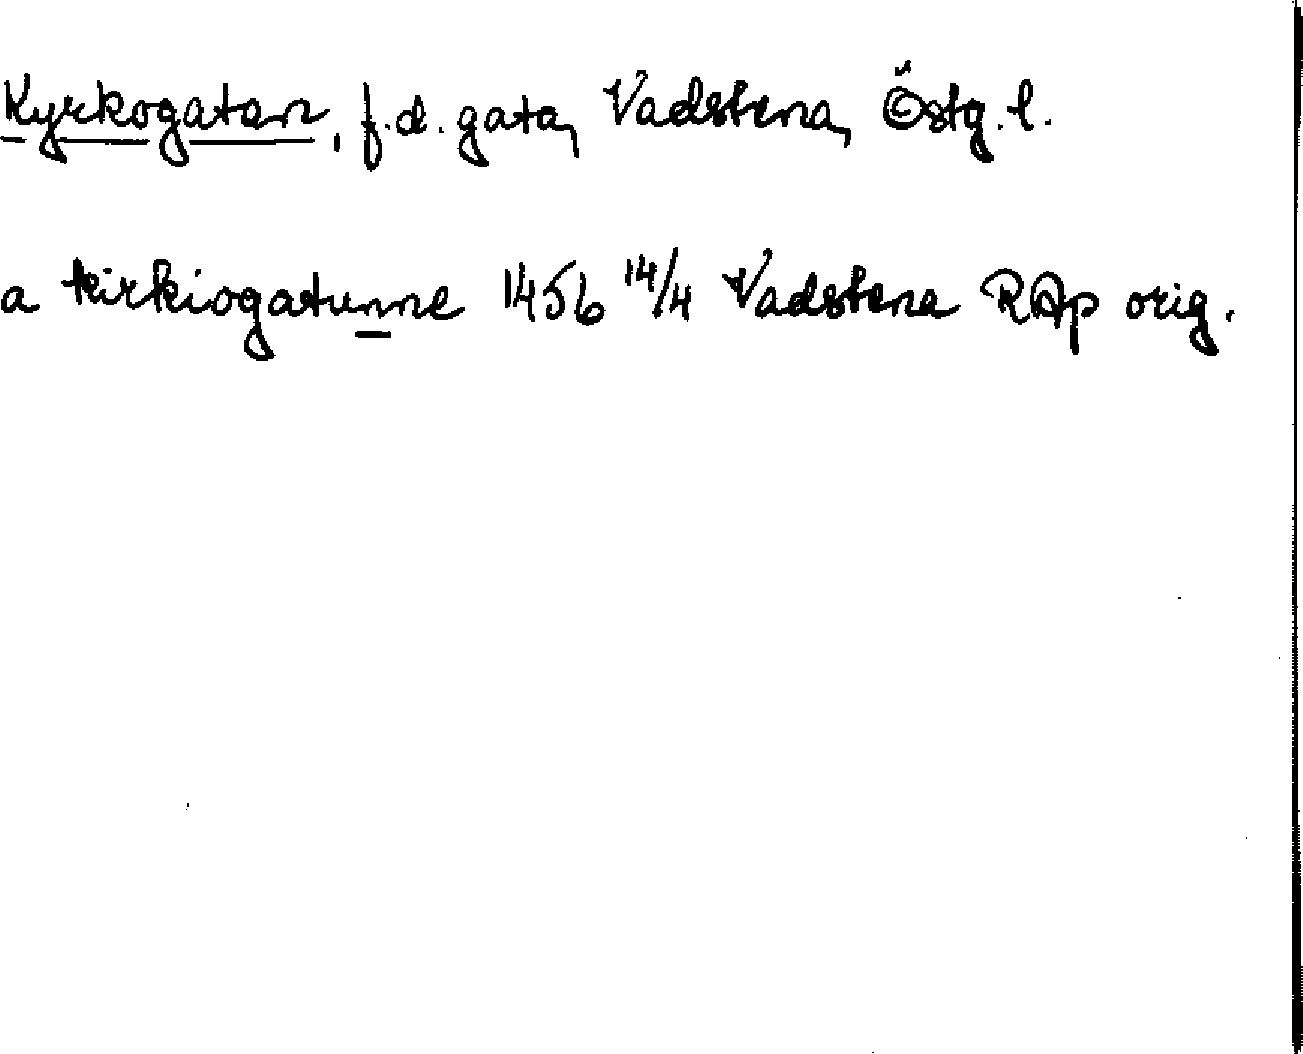 Kyrkogatan, f.d. gata, Vadstena, Östg. l.
a kirkiogatunne 1456 14/4 Vadstena RAp orig.